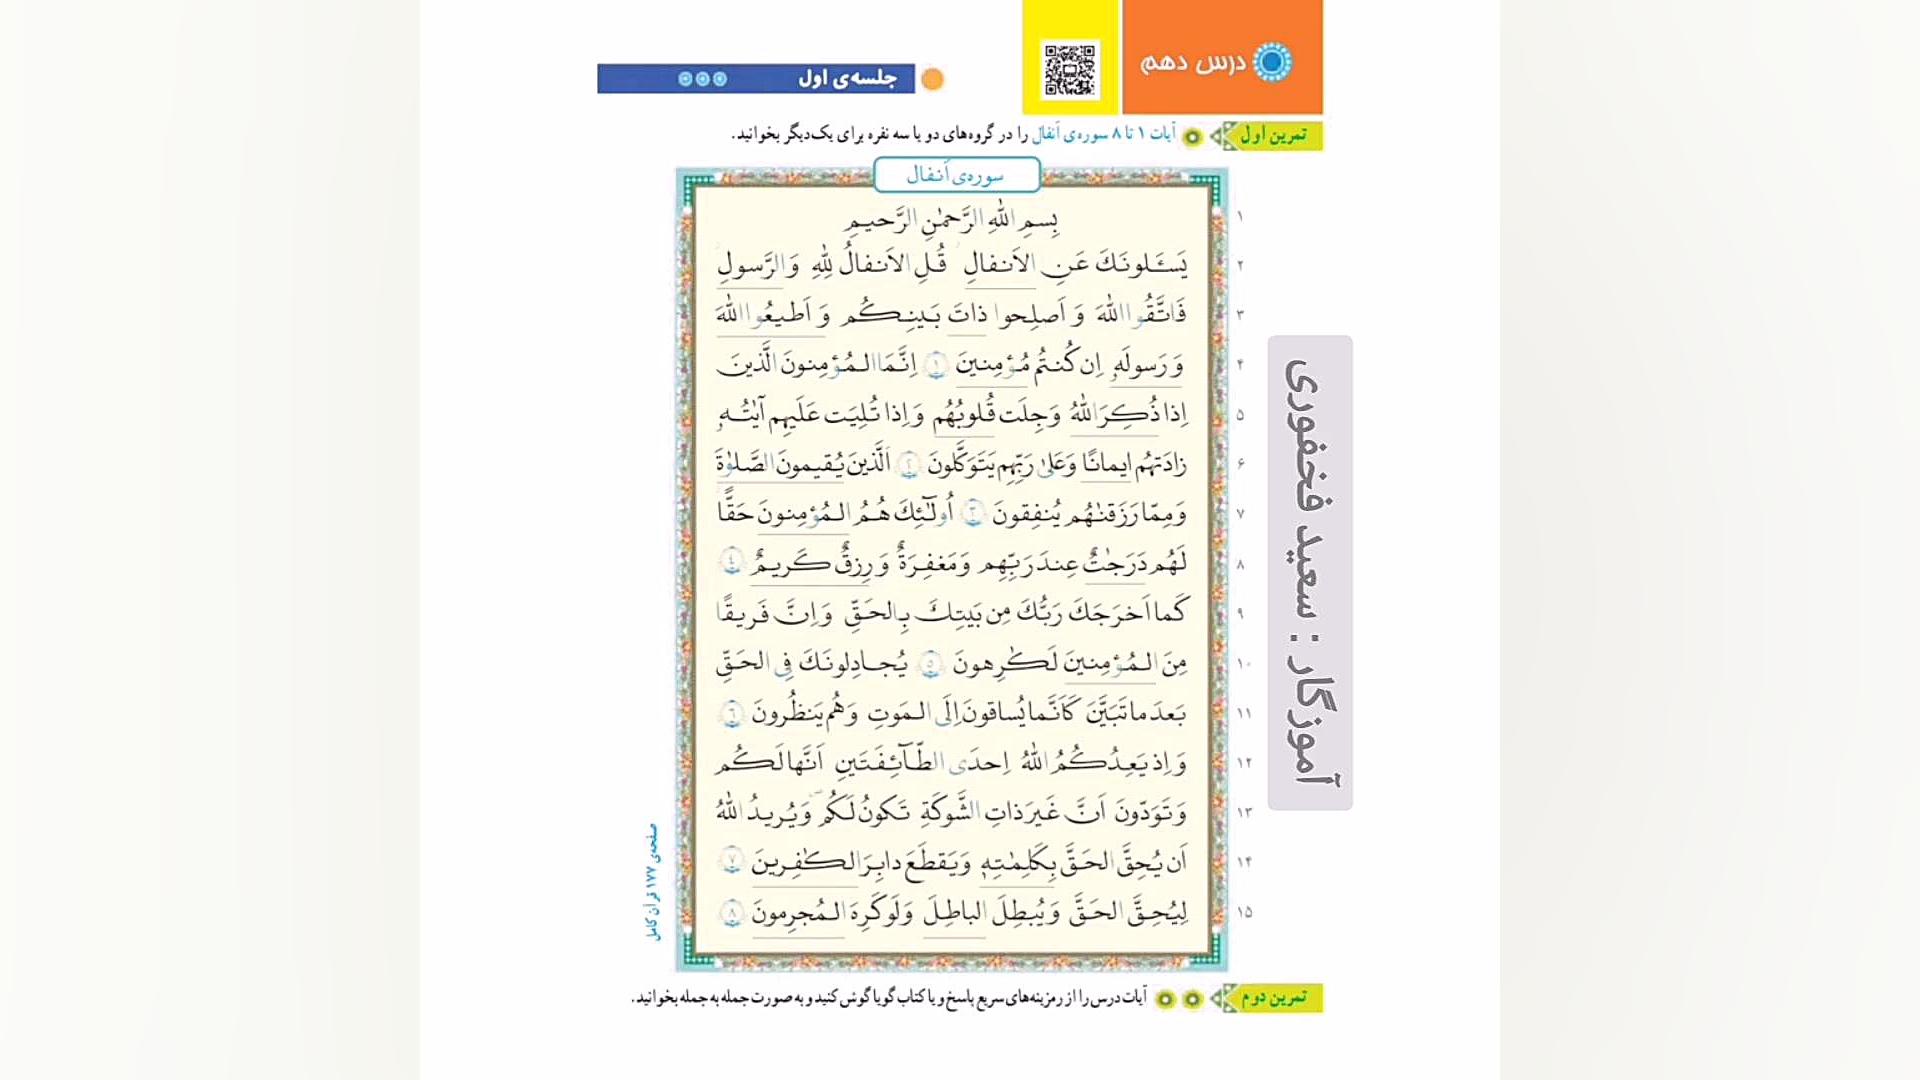 درس دهم
جلسه‌ی اول
تمرین اول
آیات ۱ تا ۸ سوره‌ی اَنفال را در گروه‌های دو یا سه نفره برای یک‌دیگر بخوانید.
سوره‌ی اَنفال
۱ بِسمِ اللهِ الرَّحمٰنِ الرَّحیمِ
۲ یَسـَٔلونَكَ عَنِ الاَنفالِ ۖ قُلِ الاَنفالُ لِلّٰهِ وَ الرَّسولِ ۖ
۳ فَاتَّقُوا اللهَ وَ اَصلِحوا ذاتَ بَینِكُم وَ اَطیعُوا اللهَ
۴ وَ رَسولَهٗ اِن كُنتُم مُؤمِنینَ ﴿۱﴾ اِنَّمَا المُؤمِنونَ الَّذینَ
۵ اِذا ذُكِرَ اللهُ وَجِلَت قُلوبُهُم وَ اِذا تُلِیَت عَلَیهِم آیٰتُهٗ
۶ زادَتهُم ایمانًا وَ عَلیٰ رَبِّهِم یَتَوَكَّلونَ ﴿۲﴾ اَلَّذینَ یُقیمونَ الصَّلوٰةَ
۷ وَ مِمّا رَزَقنٰهُم یُنفِقونَ ﴿۳﴾ اُولٰٓئِكَ هُمُ المُؤمِنونَ حَقًّا
۸ لَهُم دَرَجٰتٌ عِندَ رَبِّهِم وَ مَغفِرَةٌ وَ رِزقٌ كَریمٌ ﴿۴﴾
۹ كَما اَخرَجَكَ رَبُّكَ مِن بَیتِكَ بِالحَقِّ وَ اِنَّ فَریقًا
۱۰ مِنَ المُؤمِنینَ لَكٰرِهونَ ﴿۵﴾ یُجادِلونَكَ فِی الحَقِّ
۱۱ بَعدَ ما تَبَیَّنَ كَاَنَّما یُساقونَ اِلَی المَوتِ وَ هُم یَنظُرونَ ﴿۶﴾
۱۲ وَ اِذ یَعِدُكُمُ اللهُ اِحدَی الطّآئِفَتَینِ اَنَّها لَكُم
۱۳ وَ تَوَدّونَ اَنَّ غَیرَ ذاتِ الشَّوكَةِ تَكونُ لَكُم وَ یُریدُ اللهُ
۱۴ اَن یُحِقَّ الحَقَّ بِكَلِمٰتِهٖ وَ یَقطَعَ دابِرَ الكٰفِرینَ ﴿۷﴾
۱۵ لِیُحِقَّ الحَقَّ وَ یُبطِلَ الباطِلَ وَ لَو كَرِهَ المُجرِمونَ ﴿۸﴾
صفحه‌ی ۱۷۷ قرآن کامل
آموزگار : سعید فخفوری
تمرین دوم
آیات درس را از رمزینه‌های سریع پاسخ و یا کتاب گویا گوش کنید و به صورت جمله به جمله بخوانید.